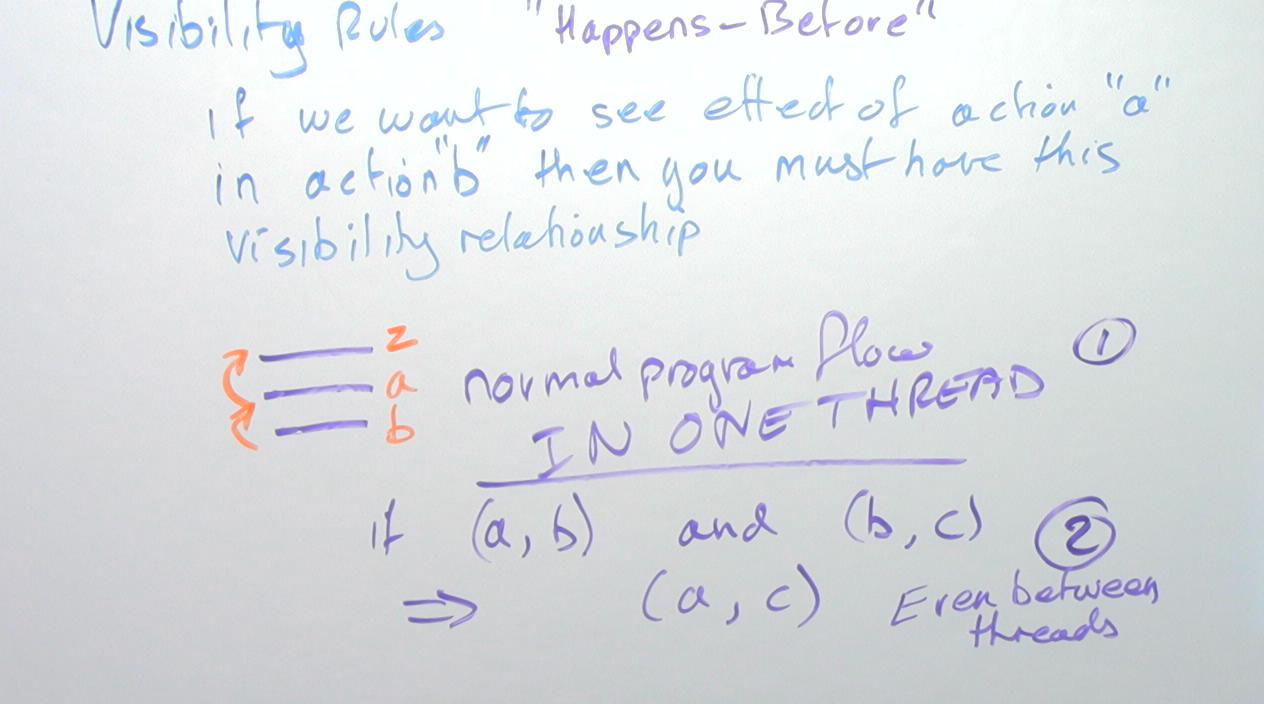 Visibility Rules "Happens-Before"
if we want to see effect of action "a"
in action "b" then you must have this
visibility relationship
z
a
b
normal program flow ①
IN ONE THREAD
if (a, b) and (b, c) ②
⇒ (a, c) Even between
threads